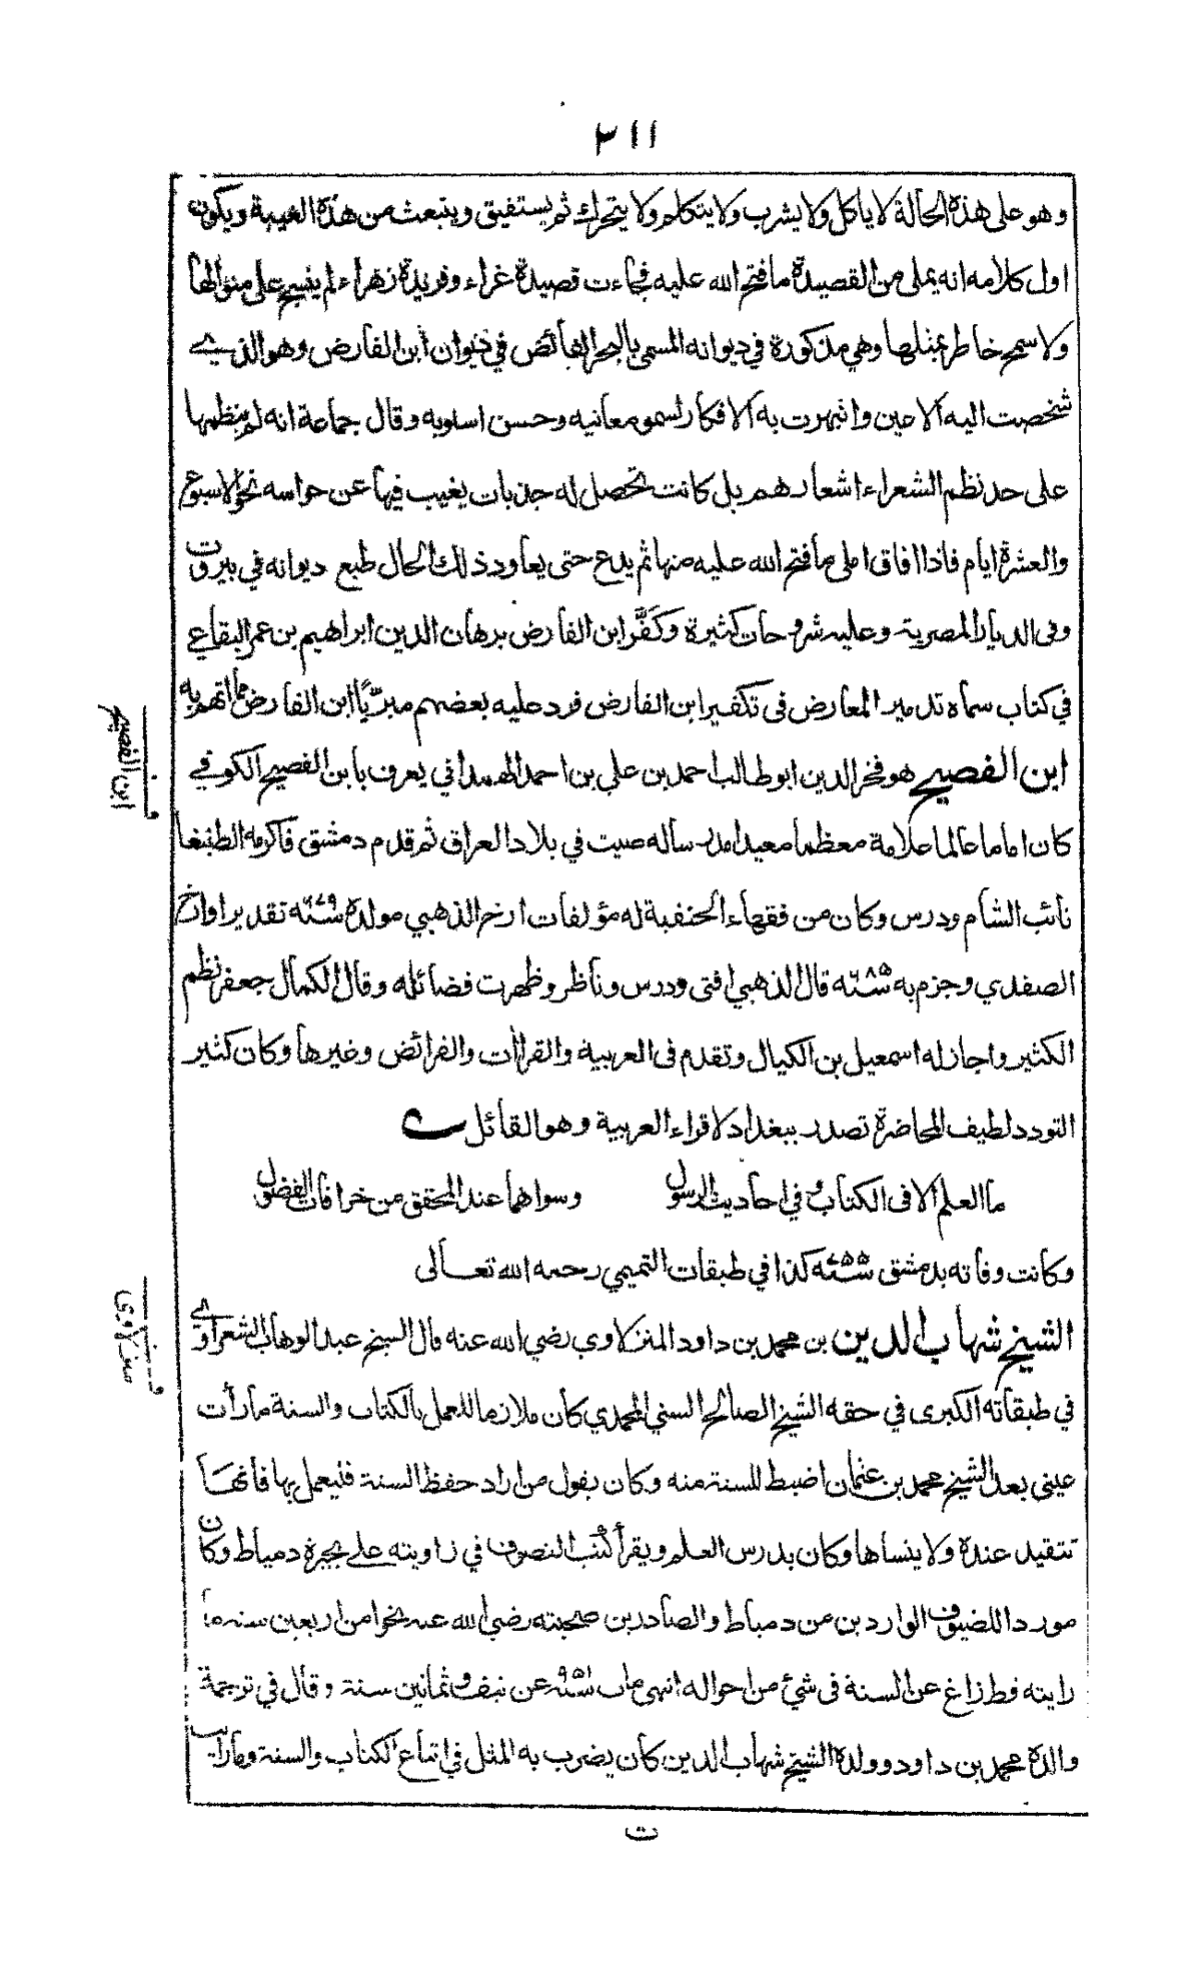 ٢١١
وهو على هذه الحالة لا يأكل ولا يشرب ولا يتكلم ولا يتحرك ثم يستفيق وينبعث من هذه الغيبة ويكون
اول كلامه انه يملى من القصيدة ما فتح الله عليه فجاءت قصيدة غراء وفريدة زهراء لم ينسج على منوالها
ولا سمح خاطر بمثلها وهي مذكورة في ديوانه المسمى بالبحر الفائض في ديوان ابن الفارض وهو الذي
شخصت اليه الاعين وانبهرت به الافكار لسمو معانيه وحسن اسلوبه وقال جماعة انه لم ينظمها
على حد نظم الشعراء اشعارهم بل كانت تحصل له جذبات يغيب فيها عن حواسه نحو الاسبوع
والعشرة ايام فاذا افاق املى ما فتح الله عليه منها ثم يدع حتى يعاود ذلك الحال طبع ديوانه في بيروت
وفى الديار المصرية وعليه شروحات كثيرة وكَفَّر ابن الفارض برهان الدين ابراهيم بن عمر البقاعي
في كتاب سماه تدمير المعارض فى تكفير ابن الفارض فرد عليه بعضهم مبرّيًا ابن الفارض مما اتهم به
ابن الفصيح هو فخر الدين ابو طالب احمد بن علي بن احمد الهمداني يعرف بابن الفصيح الكوفي
كان اماما عالما علامة معظما معيدا مدرسا له صيت في بلاد العراق ثم قدم دمشق فاكرمه الطنبغا
نائب الشام ودرس وكان من فقهاء الحنفية له مؤلفات ارخ الذهبي مولده سنة ٦٧٩ تقديرا وارخ
الصفدي وجزم به سنة ٦٨٥ قال الذهبي افتى ودرس وناظر وظهرت فضائله وقال الكمال جعفر نظم
الكثير واجاز له اسمعيل بن الكيال وتقدم فى العربية والقراآت والفرائض وغيرها وكان كثير
التودد لطيف المحاضرة تصدر ببغداد لاقراء العربية وهو القائل
ما العلم الا فى الكتاب وفي احاديث الرسول وسواهما عند المحقق من خرافات الفضول
وكانت وفاته بدمشق سنة ٧٥٥ كذا في طبقات التميمي رحمه الله تعالى
الشيخ شهاب الدين بن محمد بن داود المنزلاوي رضي الله عنه قال الشيخ عبد الوهاب الشعراوي
في طبقاته الكبرى في حقه الشيخ الصالح السني المحمدي كان ملازما للعمل بالكتاب والسنة ما رأت
عيني بعد الشيخ محمد بن عثمان اضبط للسنة منه وكان يقول من اراد حفظ السنة فليعمل بها فانها
تتقيد عنده ولا ينساها وكان يدرس العلم ويقرأ كتب التصوف في زاويته على بحيرة دمياط وكان
موردا للضيوف الواردين من دمياط والصادرين صحبته رضي الله عنه نحوا من اربعين سنة ما
رايته قط زاغ عن السنة فى شئ من احواله انتهى مات سنة ٩٥١ عن نيف وثمانين سنة وقال في ترجمة
والده محمد بن داود وولده الشيخ شهاب الدين كان يضرب به المثل في اتباع الكتاب والسنة وما رايت
ابن الفصيح
منزلاوى
ت